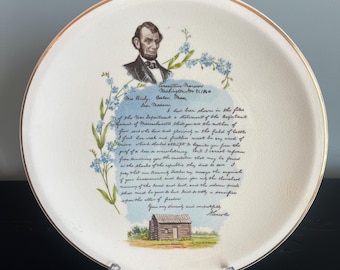 Executive Mansion
Washington, Nov 21, 1864
Mrs. Bixby, Boston, Mass,
Dear Madam:
I have been shown in the files
of the War Department a statement of the Adjutant
General of Massachusetts that you are the mother of
five sons who have died gloriously on the field of battle
I feel how weak and fruitless must be any word of
mine which should attempt to beguile you from the
grief of a loss so overwhelming. But I cannot refrain
from tendering you the consolation that may be found
in the thanks of the republic they died to save. I
pray that our Heavenly Father may assuage the anguish
of your bereavement, and leave you only the cherished
memory of the loved and lost, and the solemn pride
that must be yours to have laid so costly a sacrifice
upon the altar of freedom
Yours very sincerely and respectfully
A. Lincoln